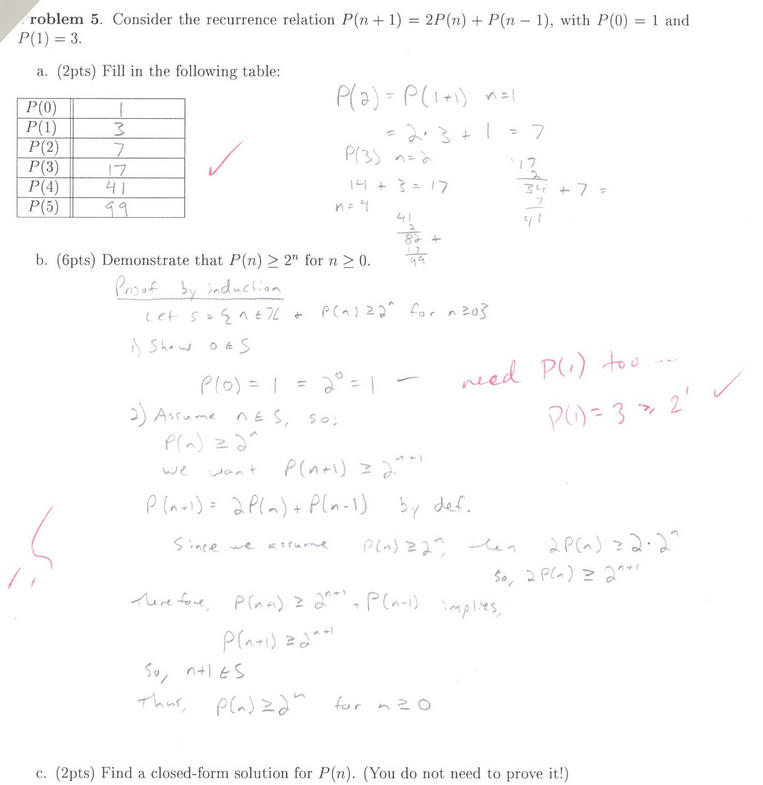 roblem 5. Consider the recurrence relation P(n + 1) = 2P(n) + P(n − 1), with P(0) = 1 and
P(1) = 3.
a. (2pts) Fill in the following table:
P(0) 1
P(1) 3
P(2) 7
P(3) 17
P(4) 41
P(5) 99
✓
P(2) = P(1+1) n=1
= 2·3 + 1 = 7
P(3) n=2
14 + 3 = 17
n=4
41
2
82 +
17
99
17
2
34 + 7 =
7
41
b. (6pts) Demonstrate that P(n) ≥ 2ⁿ for n ≥ 0.
Proof by induction
Let S = { n ∈ ℤ + P(n) ≥ 2ⁿ for n ≥ 0}
1) Show 0 ∈ S
P(0) = 1 = 2⁰ = 1 –
need P(1) too ...
P(1) = 3 ≥ 2¹ ✓
2) Assume n ∈ S, so;
P(n) ≥ 2ⁿ
we want P(n+1) ≥ 2ⁿ⁺¹
P(n+1) = 2P(n) + P(n-1) by def.
Since we assume P(n) ≥ 2ⁿ, then 2P(n) ≥ 2·2ⁿ
So, 2P(n) ≥ 2ⁿ⁺¹
Therefore, P(n+1) ≥ 2ⁿ⁺¹ + P(n-1) implies,
P(n+1) ≥ 2ⁿ⁺¹
So, n+1 ∈ S
Thus, P(n) ≥ 2ⁿ for n ≥ 0
c. (2pts) Find a closed-form solution for P(n). (You do not need to prove it!)